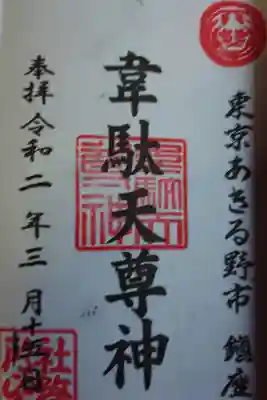 東京あきる野市 鎮座
韋駄天尊神
奉拝 令和二年三月十五日